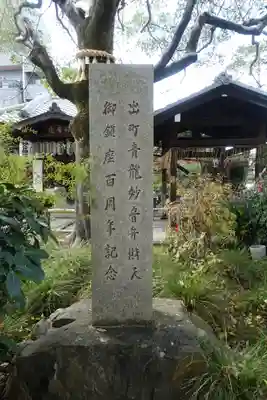 出町青龍妙音弁財天
御鎮座百周年記念